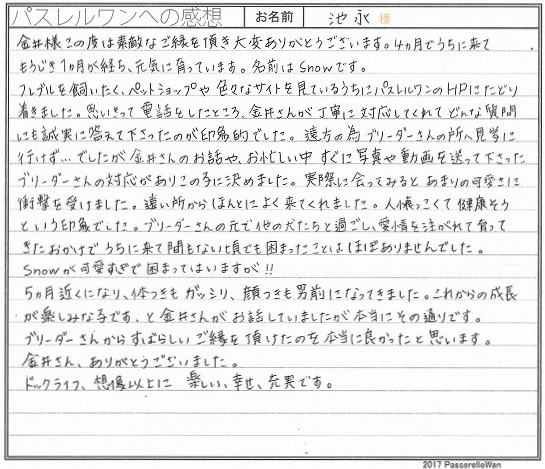 パスレルワンへの感想 お名前 池永 様
金井様この度は素敵なご縁を頂き大変ありがとうございます。4ヵ月でうちに来て
もうじき1ヵ月が経ち、元気に育っています。名前はSnowです。
フレブルを飼いたく、ペットショップや色々なサイトを見ているうちにパスレルワンのHPにたどり
着きました。思いきって電話をしたところ、金井さんが丁寧に対応してくれてどんな質問
にも誠実に答えて下さったのが印象的でした。遠方の為ブリーダーさんの所へ見学に
行けず…でしたが金井さんのお話や、お忙しい中すぐに写真や動画を送って下さった
ブリーダーさんの対応がありこの子に決めました。実際に会ってみるとあまりの可愛さに
衝撃を受けました。遠い所からほんとによく来てくれました。人懐っこくて健康そう
という印象でした。ブリーダーさんの元で他の犬たちと過ごし、愛情を注がれて育って
きたおかげでうちに来て間もない頃でも困まったことはほぼありませんでした。
Snowが可愛すぎで困まってはいますが!!
5ヵ月近くになり、体つきもガッシリ、顔つきも男前になってきました。これからの成長
が楽しみな子です、と金井さんがお話していましたが本当にその通りです。
ブリーダーさんからすばらしいご縁を頂けたのを本当に良かったと思います。
金井さん、ありがとうございました。
ドックライフ、想像以上に 楽しい、幸せ、充実です。
2017 PasserelleWan